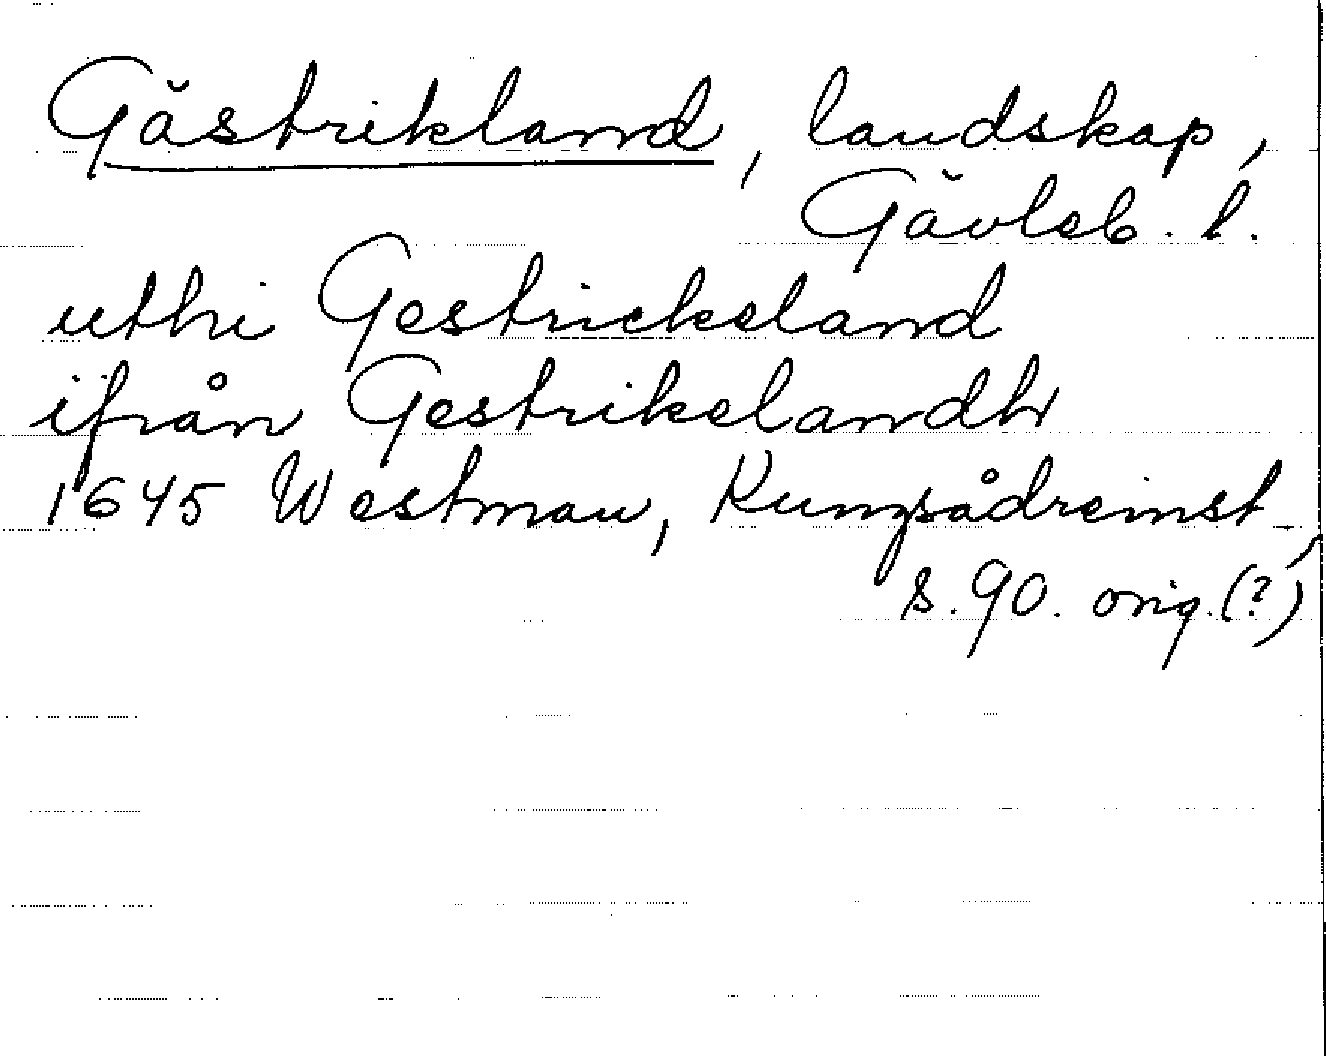 Gästrikland, landskap,
Gävleb. l.
uthi Gestrickeland
ifrån Gestrikelandh
1645 Westman, Kungsådreinst.,
s. 90. orig. (?)